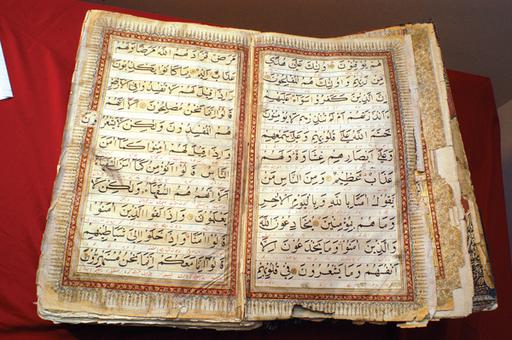 هم يوقنون اولئك على هدى
من ربهم واولئك هم المفلحون
ان الذين كفروا سواء عليهم
ءانذرتهم ام لم تنذرهم لا يؤمنون
ختم الله على قلوبهم وعلى سمعهم
وعلى ابصارهم غشاوة ولهم
عذاب عظيم ومن الناس من
يقول امنا بالله وباليوم الاخر
وما هم بمؤمنين يخادعون الله
والذين امنوا وما يخدعون الا
انفسهم وما يشعرون في قلوبهم
مرض فزادهم الله مرضا ولهم
عذاب اليم بما كانوا يكذبون
واذا قيل لهم لا تفسدوا في الارض
قالوا انما نحن مصلحون الا انهم
هم المفسدون ولكن لا يشعرون
واذا قيل لهم امنوا كما امن
الناس قالوا انؤمن كما امن السفهاء
الا انهم هم السفهاء ولكن لا
يعلمون واذا لقوا الذين امنوا
قالوا امنا واذا خلوا الى شياطينهم
قالوا انا معكم انما نحن مستهزؤن